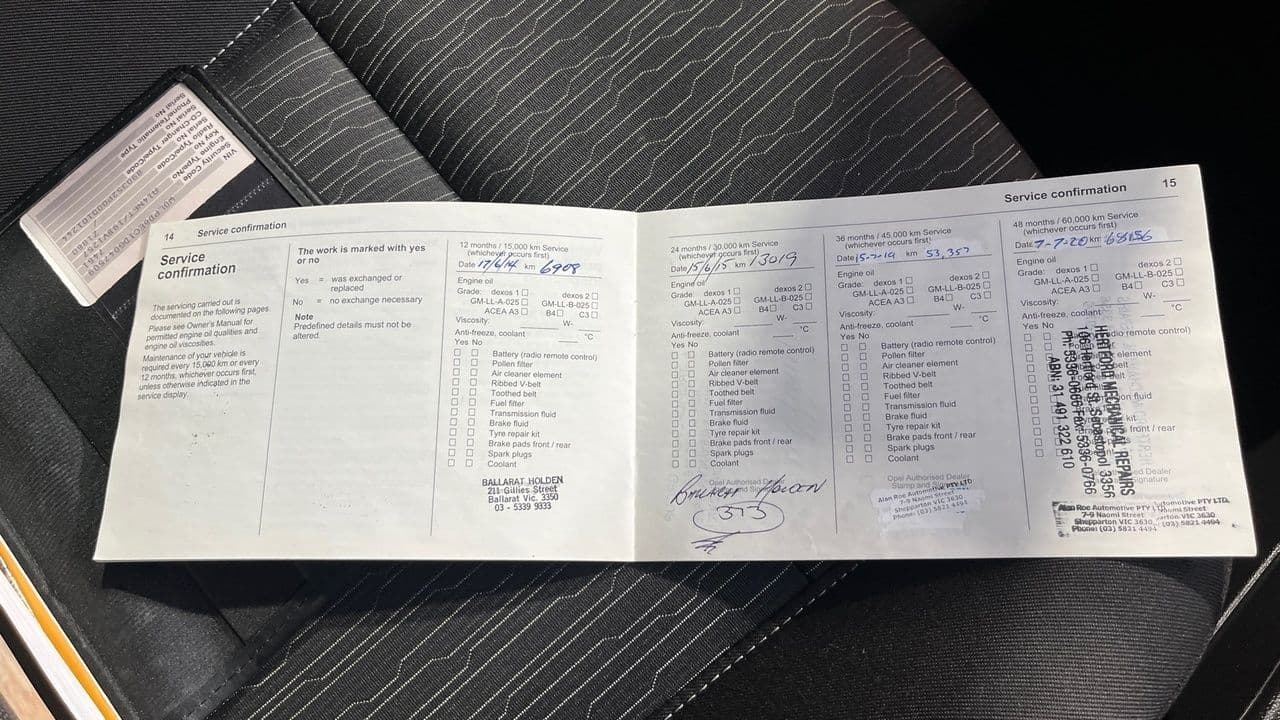 14 Service confirmation
Service
confirmation
The servicing carried out is
documented on the following pages.
Please see Owner's Manual for
permitted engine oil qualities and
engine oil viscosities.
Maintenance of your vehicle is
required every 15,000 km or every
12 months, whichever occurs first,
unless otherwise indicated in the
service display.
The work is marked with yes
or no
Yes = was exchanged or
replaced
No = no exchange necessary
Note
Predefined details must not be
altered.
12 months / 15,000 km Service
(whichever occurs first)
Date 17/6/14 km 6908
Engine oil
Grade: dexos 1 dexos 2
GM-LL-A-025 GM-LL-B-025
ACEA A3 B4 C3
Viscosity: W-
Anti-freeze, coolant °C
Yes No
Battery (radio remote control)
Pollen filter
Air cleaner element
Ribbed V-belt
Toothed belt
Fuel filter
Transmission fluid
Brake fluid
Tyre repair kit
Brake pads front / rear
Spark plugs
Coolant
BALLARAT HOLDEN
211 Gillies Street
Ballarat Vic. 3350
03 - 5339 9333
Service confirmation 15
24 months / 30,000 km Service
(whichever occurs first)
Date 15/6/15 km 13019
Engine oil
Grade: dexos 1 dexos 2
GM-LL-A-025 GM-LL-B-025
ACEA A3 B4 C3
Viscosity: W-
Anti-freeze, coolant °C
Yes No
Battery (radio remote control)
Pollen filter
Air cleaner element
Ribbed V-belt
Toothed belt
Fuel filter
Transmission fluid
Brake fluid
Tyre repair kit
Brake pads front / rear
Spark plugs
Coolant
Opel Authorised Dealer
Ballarat Holden
373
36 months / 45,000 km Service
(whichever occurs first)
Date km 53,357
Engine oil
Grade: dexos 1 dexos 2
GM-LL-A-025 GM-LL-B-025
ACEA A3 B4 C3
Viscosity: W-
Anti-freeze, coolant °C
Yes No
Battery (radio remote control)
Pollen filter
Air cleaner element
Ribbed V-belt
Toothed belt
Fuel filter
Transmission fluid
Brake fluid
Tyre repair kit
Brake pads front / rear
Spark plugs
Coolant
Opel Authorised Dealer
Stamp and
Alan Roe Automotive PTY LTD
7-9 Naomi Street
Shepparton VIC 3630
Phone: (03) 5821 4494
48 months / 60,000 km Service
(whichever occurs first)
Date 7-7-20 km 68156
Engine oil
Grade: dexos 1 dexos 2
GM-LL-A-025 GM-LL-B-025
ACEA A3 B4 C3
Viscosity: W-
Anti-freeze, coolant °C
Yes No
radio remote control)
element
belt
fluid
kit
front / rear
Signature
HERTFORD MECHANICAL REPAIRS
106 Hertford St. Sebastopol 3356
ABN: 31 491 322 610
Alan Roe Automotive PTY LTD
7-9 Naomi Street
Shepparton VIC 3630
Phone: (03) 5821 4494
VIN
Security Code
Engine Type/No
Key No
Radio Type/Code
Serial No
CD-Changer Type/Code
Serial No
Phone/Telematic Type
Serial No